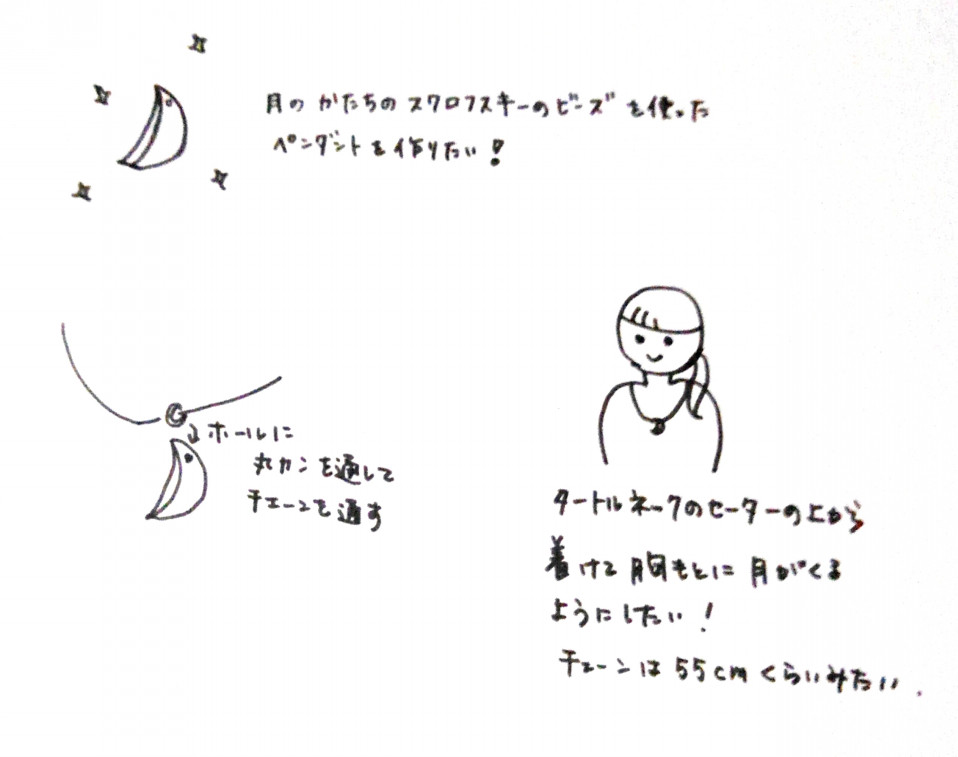 月のかたちのスワロフスキーのビーズを使った
ペンダントを作りたい!
ホールに
丸カンを通して
チェーンを通す
タートルネックのセーターの上から
着けて胸もとに月がくる
ようにしたい!
チェーンは55cmくらいみたい.